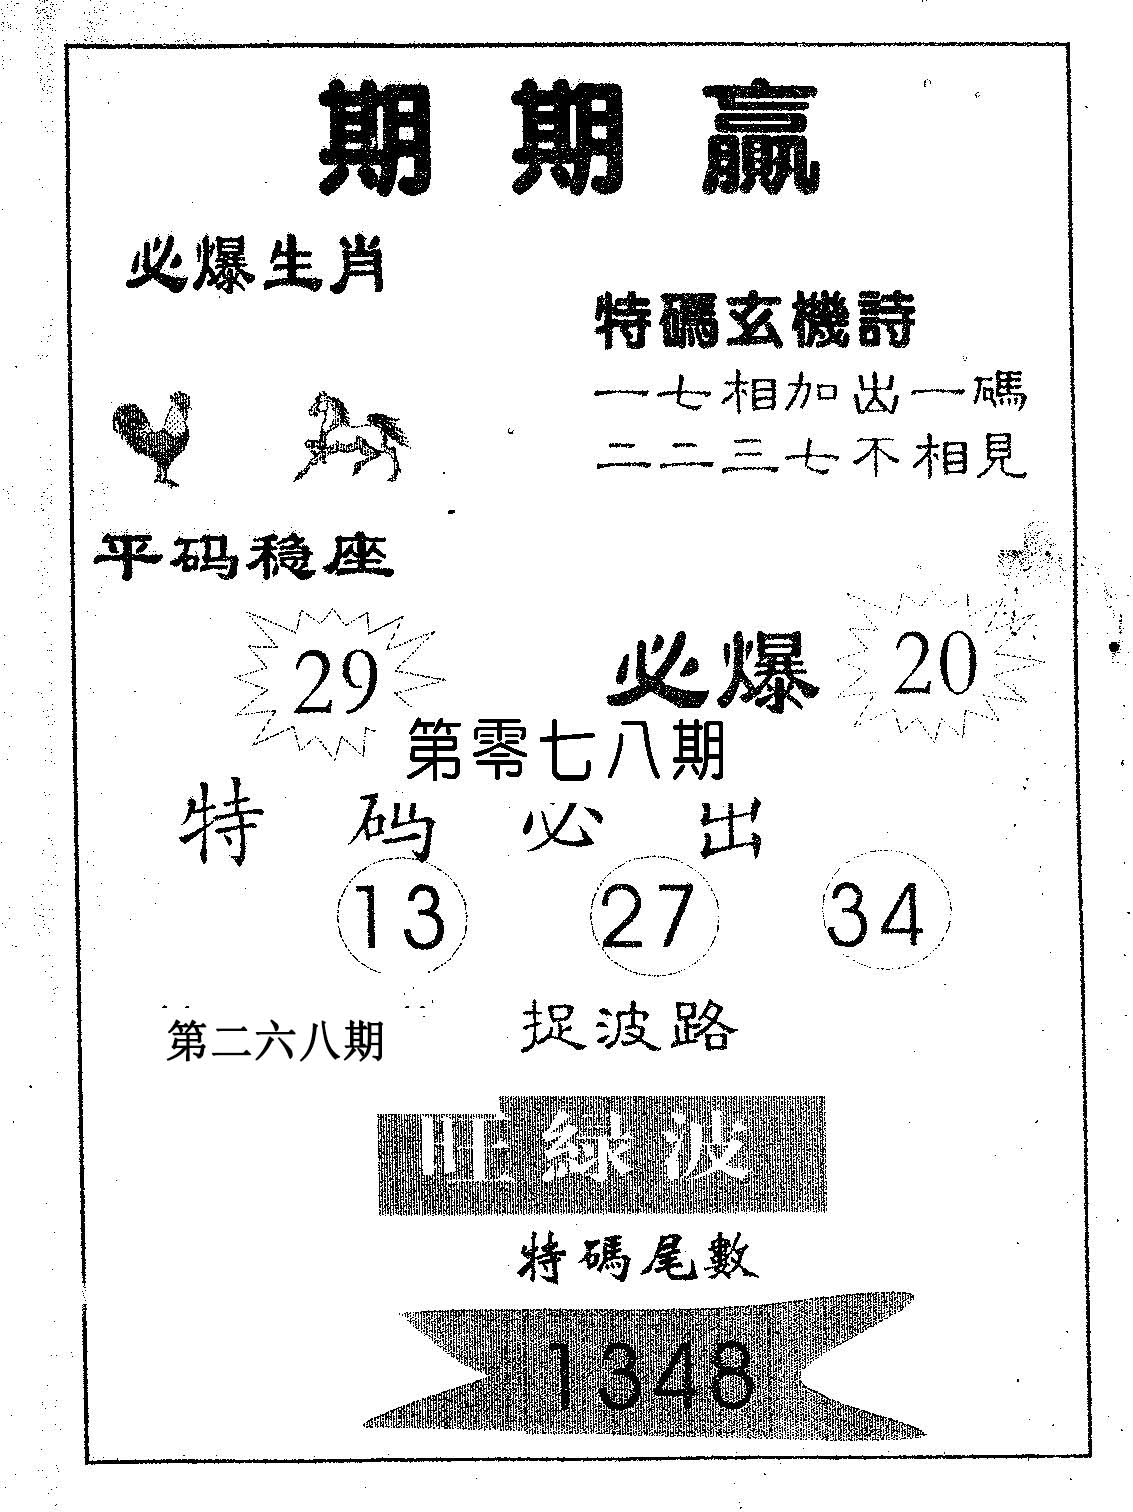 期期贏
必爆生肖
特碼玄機詩
一七相加出一碼
二二三七不相見
平码稳座
29
必爆 20
第零七八期
特码必出
13 27 34
第二六八期
捉波路
旺綠波
特碼尾數
1348